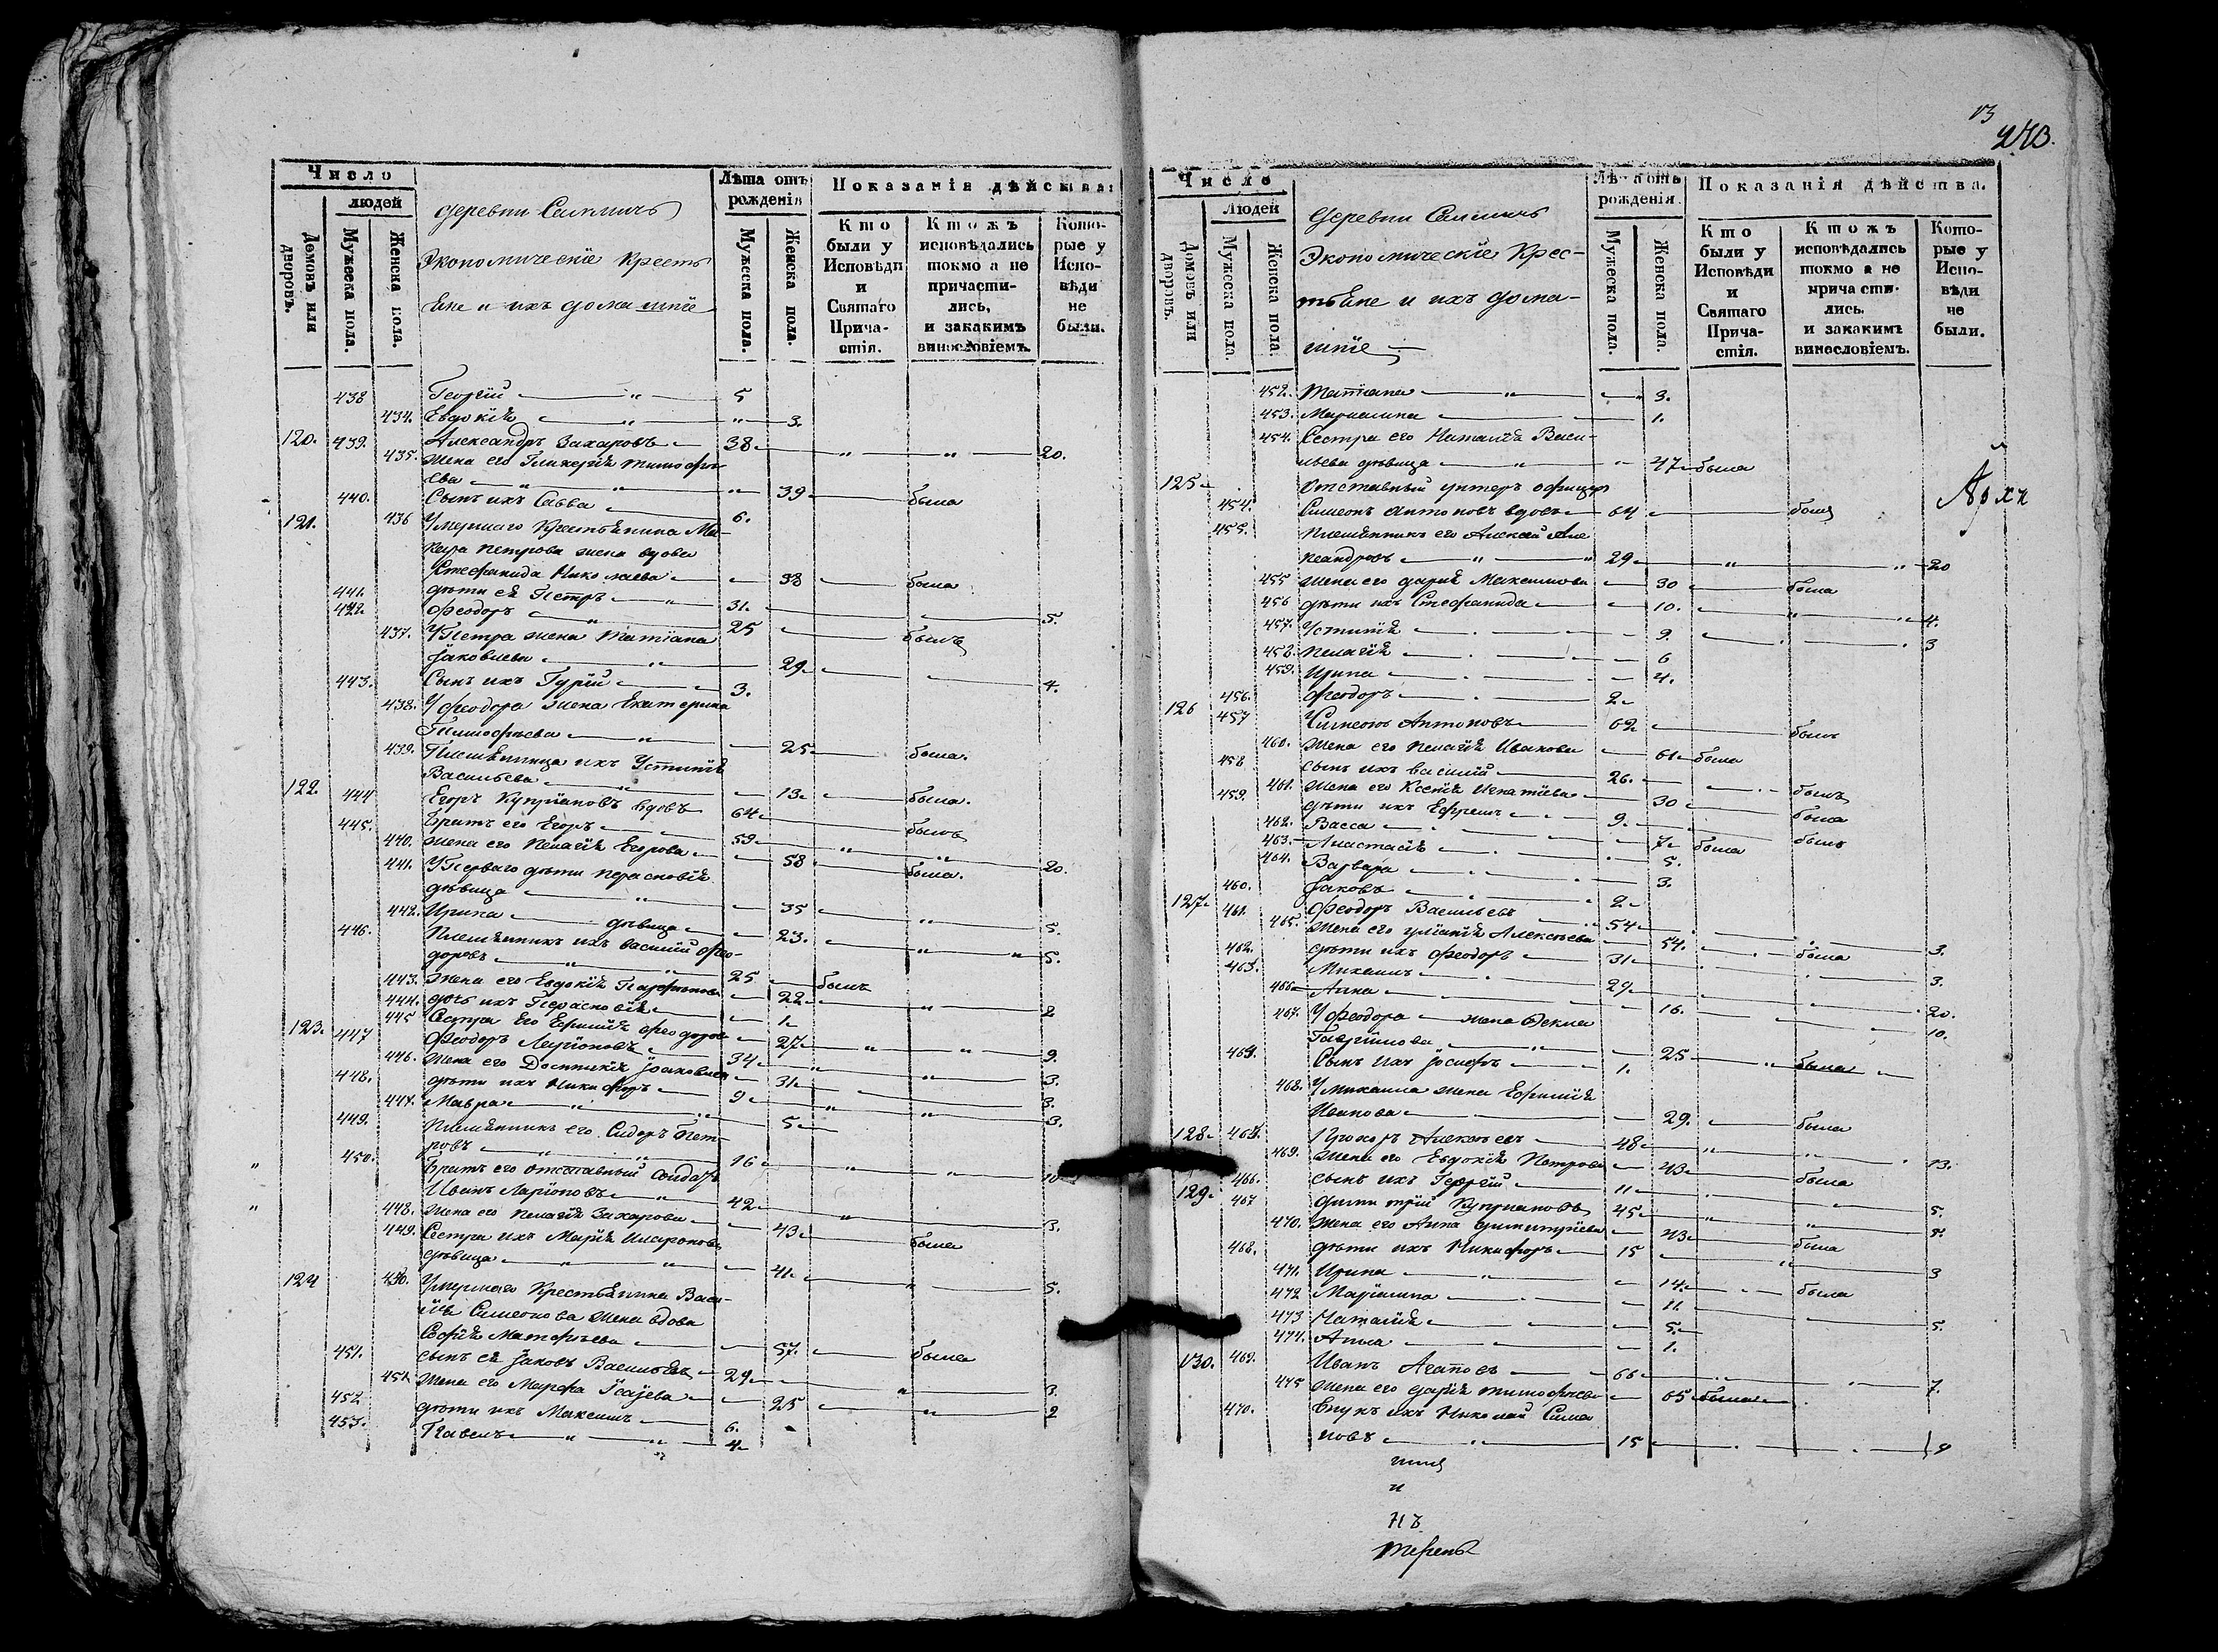 Число
людей
Домовъ или дворовъ.
Мужеска пола.
Женска пола.
деревни
Экономическіе Кресть
яне и ихъ домашніе
Лѣта отъ рожденія
Мужеска пола.
Женска пола.
Показанія дѣйства:
Кто были у Исповѣди и Святаго Причастія.
Ктожъ исповѣдались токмо а не причастились, и закакимъ винословіемъ.
Которые у Исповѣди не были.
438 Георгій " 5
434. Евдокія " " 3.
120. 439. Александръ Захаровъ 38 " " 20.
435. Жена его Гликерія Тимофѣ
ева " " 39 была
440. Сынъ ихъ Савва 6.
121. 436 Умершаго Крестьянина Ма-
кара Петрова жена вдова
Стефанида Николаева 38 была
441. дѣти ея Петръ " 31. 5.
442. Феодоръ " 25 былъ
437. У Петра жена Татіана
Іаковлева " 29 4.
443. Сынъ ихъ Гурій 3.
438. У Феодора жена Екатерина
Тимофѣева " 25 была.
439. Племянница ихъ Устинія
Васильева " 13 была.
122. 444 Егоръ Купріановъ вдовъ 64 былъ
445. Братъ его Егоръ 59 " " 20.
440. Жена его Пелагія Егорова 58 была.
441. У Перваго дѣти Парасковія
дѣвица " 35 " 5.
442. Ирина дѣвица 23. " " 5.
446. Племянникъ ихъ Василій Фео-
доровъ " " 25 былъ
443. Жена его Евдокія 22 " 2
444. дочь ихъ Парасковія 1.
445 Сестра его Ефимія Феодоров 27 " " 9.
123. 447 Феодоръ Ларіоновъ 34 " " 3.
446. Жена его Домникія Іаковлева 31 3.
448. дѣти ихъ Никифоръ 9 " " 3.
447. Мавра " " 5
449. Племянникъ его Сидоръ Пет-
ровъ " " 16 " " 10
" 450. Братъ его отставный Солдатъ
Иванъ Ларіоновъ " 42 " 3.
" 448. Жена его Пелагія Захарова 43 была
449. Сестра ихъ Марія Иларіонова
дѣвица " " 41 " 5.
124 450. Умершаго Крестьянина Васи-
лія Симеонова Жена вдова
Софія Матфѣева 57. была
451. сынъ ея Іаковъ Васильевъ 29 " 3.
451 Жена его Марфа Исаіева 25 " 2
452 дѣти ихъ Максимъ 6.
453. Павелъ " " 4
13
273.
Число
Людей
Домовъ или дворовъ.
Мужеска пола.
Женска пола.
Деревни
Экономическіе Крес-
тьяне и ихъ дома-
шніе
Лѣта отъ рожденія.
Мужеска пола.
Женска пола.
Показанія дѣйства.
Кто были у Исповѣди и Святаго Причастія.
Ктожъ исповѣдались токмо а не причастились. и закакимъ винословіемъ.
Которые у Исповѣди не были.
452. Татіана " " 3.
453. Маріамна 1.
454. Сестра его Наталія Васи-
льева дѣвица " " 47 была
125 Отставный унтеръ офицеръ
454. Симеонъ Антоновъ вдовъ 64 былъ
455. Племянникъ его Алексѣй Але
ксандровъ " " 29 " " 20
455 Жена его Дарія Максимова 30 была
456 дѣти ихъ Стефанида 10. " " 4.
457. Устинія 9. 3
458. Пелагія 6
459. Ирина 4.
456. Феодоръ 2
126 457 Симеонъ Антоновъ 62 былъ
460. Жена его Пелагія Иванова 61 была
458 сынъ ихъ Василій 26. былъ
461. Жена его Ксенія Игнатіева 30 была
459. дѣти ихъ Ефремъ 9. былъ
462. Васса 7 была
463. Анастасія 5.
464. Варвара 3.
460. Іаковъ 2
127. 461. Феодоръ Васильевъ 54 3.
465. Жена его Уліанія Алексѣева 54. была
462. дѣти ихъ Феодоръ 31 3.
463. Михаилъ 29 20.
466 Анна 16. 10.
467. У Феодора жена Фекла
Гавріилова " 25 " была
464. Сынъ ихъ Іосифъ 1.
468. У Михаила жена Ефимія
Иванова 29. была
128 465. Прохоръ Алексѣевъ 48 " " 13.
469. Жена его Евдокія Петрова 43 была
466. сынъ ихъ Георгій 11 5.
129. 467 Димитрій Купріановъ 45 " " 5.
470. Жена его Анна Димитріева 43 была
468. дѣти ихъ Никифоръ 15 " 3
471. Ирина " 14. была
472 Маріамна 11 5.
473 Наталія 5.
474. Анна 1.
130. 469. Иванъ Агаповъ 66 7.
475 Жена его Дарія Тимофѣева 65 была
470. Внукъ ихъ Николай Симео
новъ 15 9
и